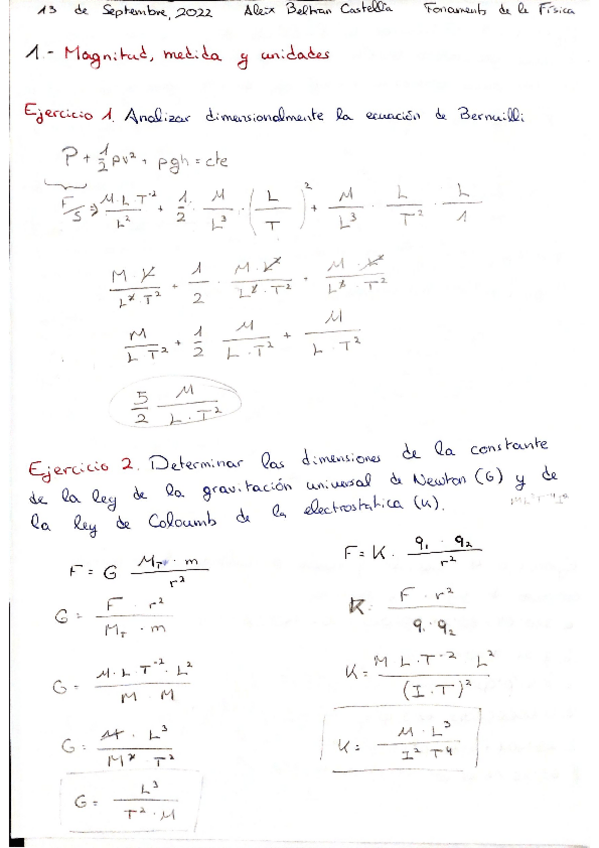 13 de Septembre, 2022 Aleix Beltran Castellà Fonaments de la Física
1.- Magnitud, medida y unidades
Ejercicio 1. Analizar dimensionalmente la ecuación de Bernuilli
P + 1/2 ρv² + ρgh = cte
F/S ⇒ M·L·T⁻²/L² + 1/2 · M/L³ · (L/T)² + M/L³ · L/T² · L/1
M·L/L²·T² + 1/2 · M·L²/L³·T² + M·L²/L³·T²
M/L T² + 1/2 M/L·T² + M/L·T²
5/2 M/L·T²
Ejercicio 2. Determinar las dimensiones de la constante
de la ley de la gravitación universal de Newton (G) y de
la ley de Coloumb de la electrostatica (K).
F = G M_T · m/r²
G = F · r²/M_T · m
G = M·L·T⁻²·L²/M·M
G = M·L³/M²·T²
G = L³/T²·M
F = K · q₁ · q₂/r²
K = F · r²/q₁·q₂
K = M L·T⁻² L²/(I·T)²
K = M·L³/I² T⁴